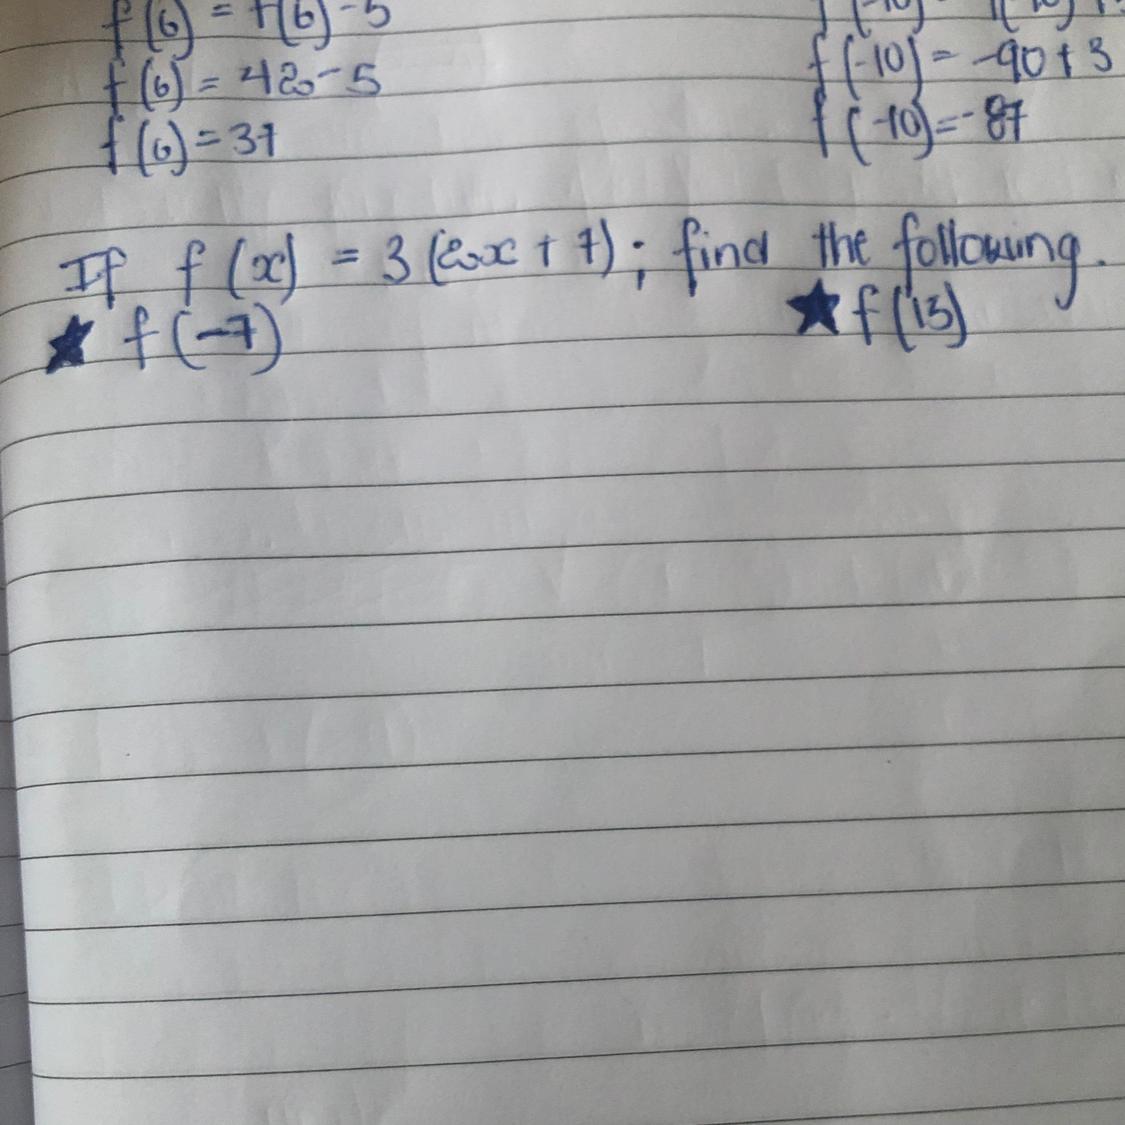 f(6) = 7(6) - 5
f(6) = 42 - 5
f(6) = 37
f(-10) = -90 + 3
f(-10) = -87
If f(x) = 3(2x + 7); find the following.
★ f(-7)
★ f(13)